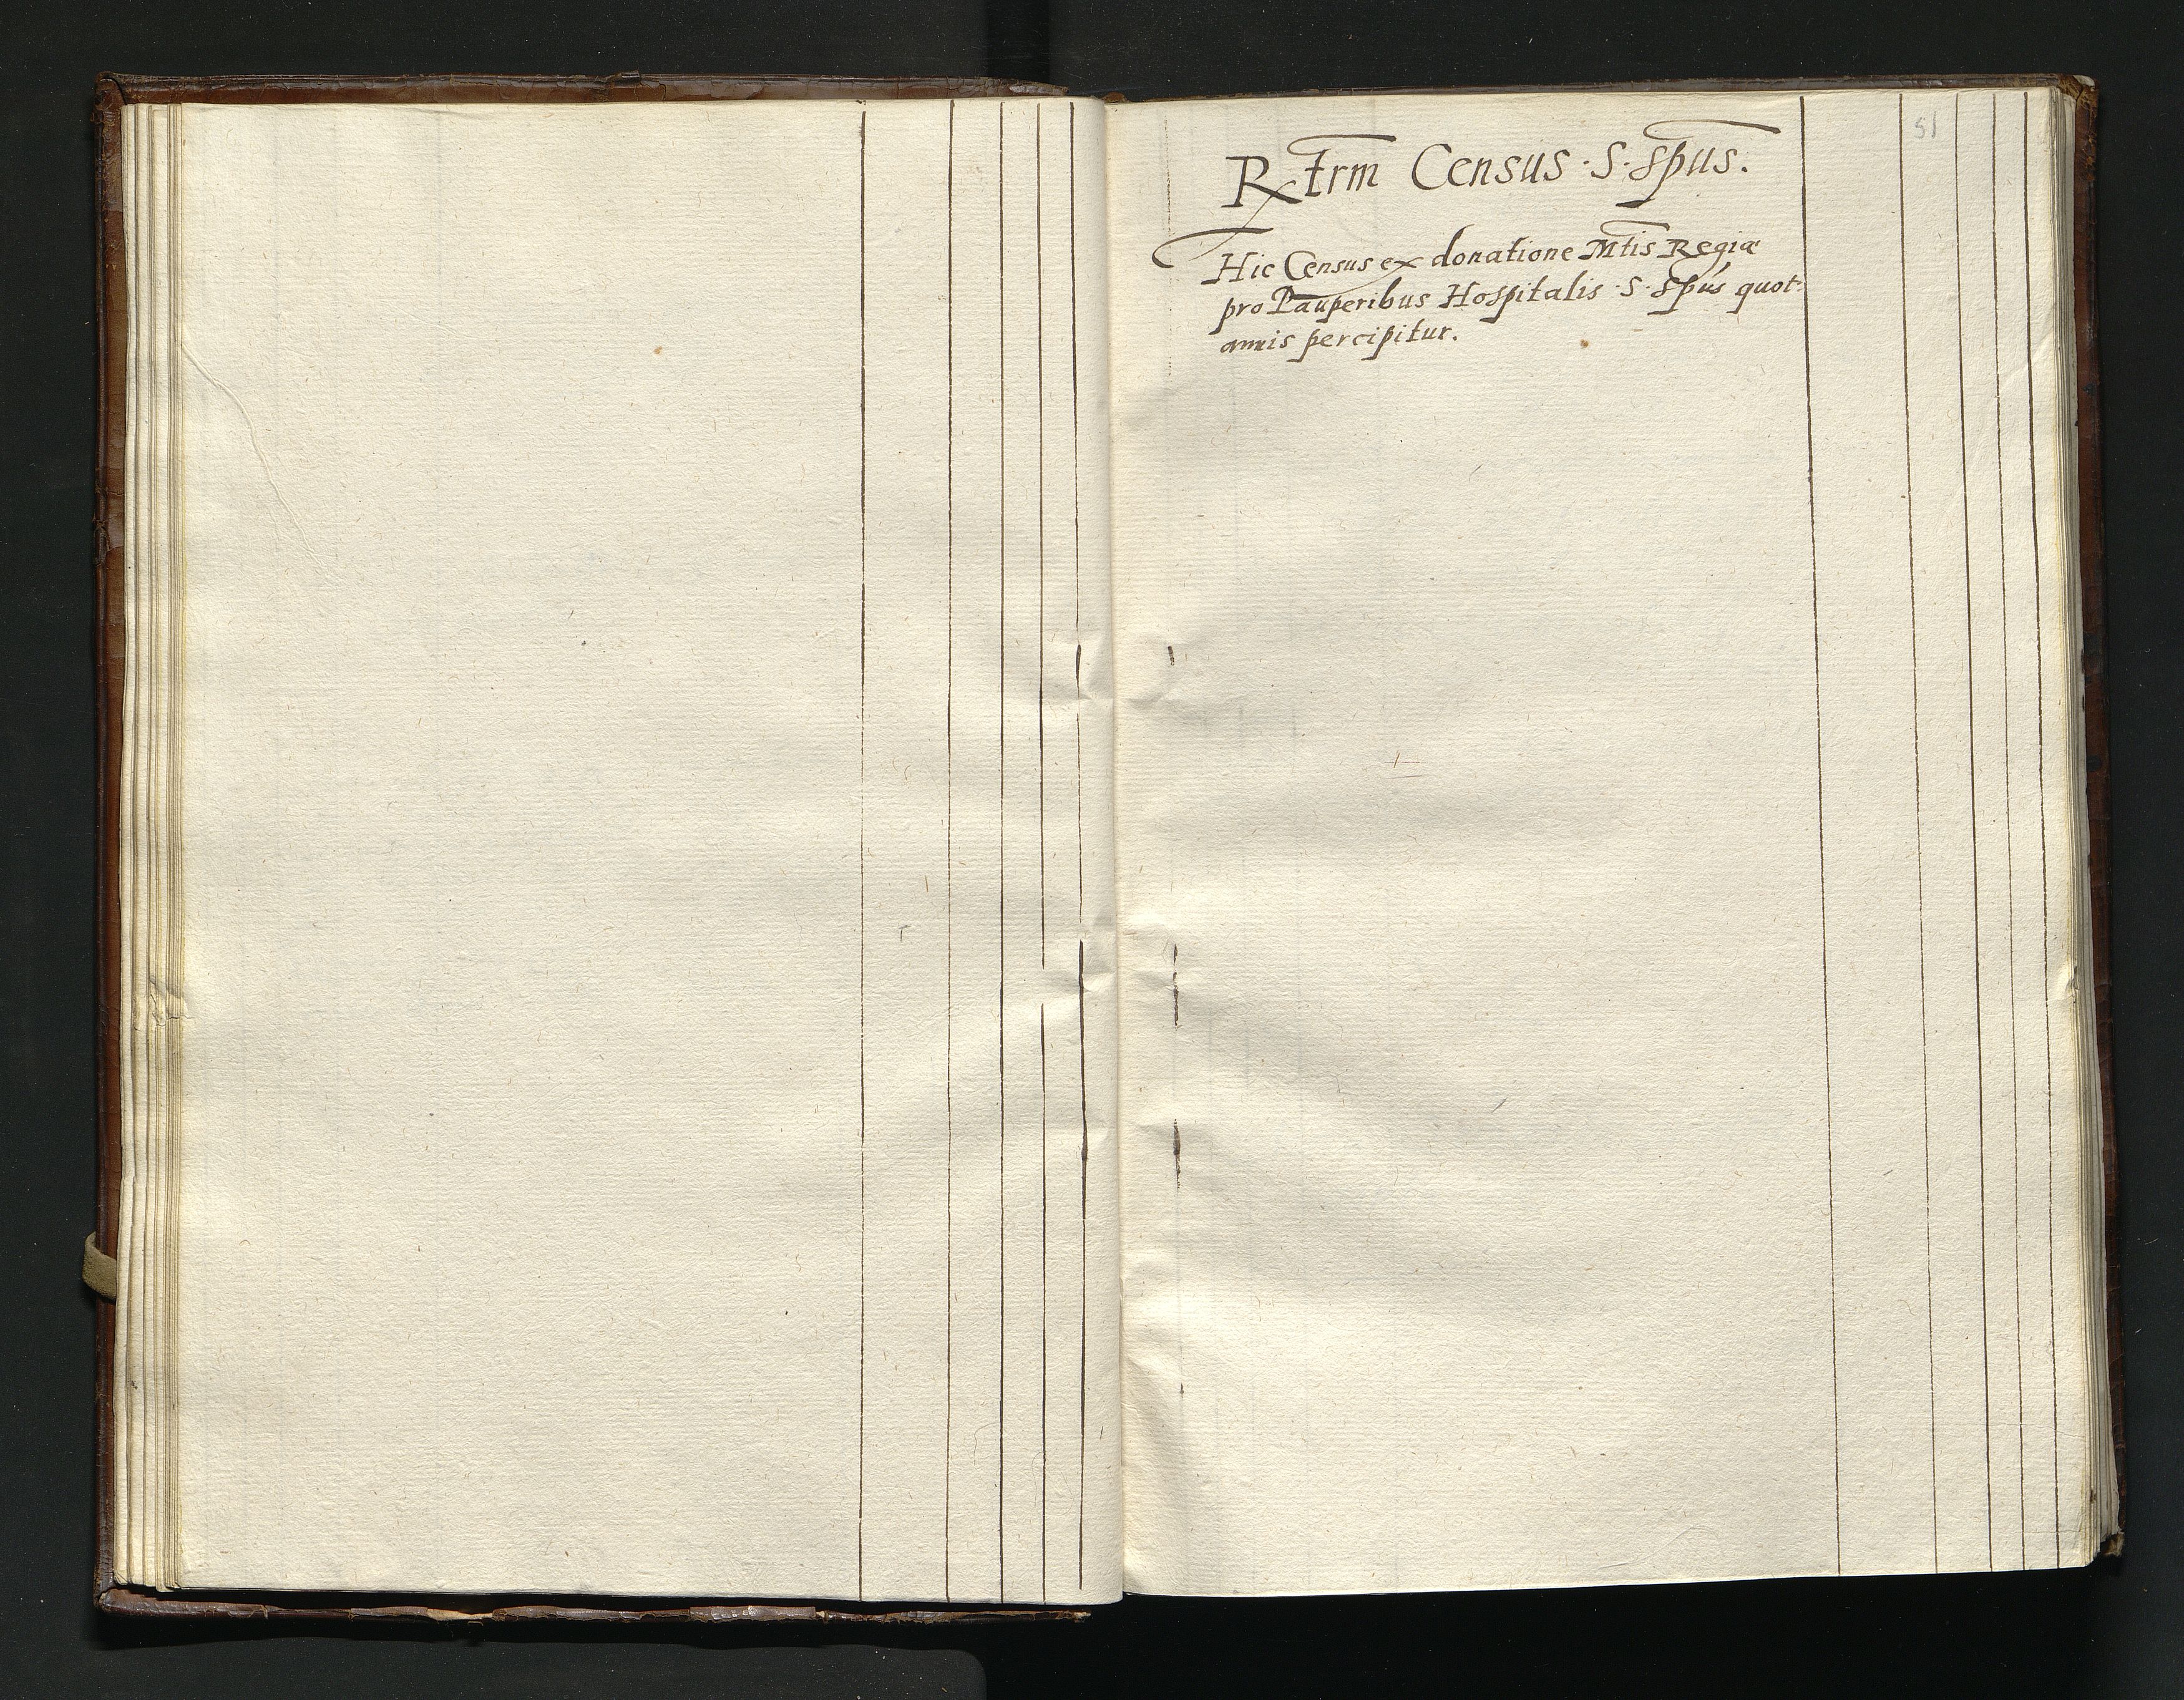 51
Rx trm Census · S · Spus.
Hic Census ex donatione Mtis Regiæ
pro Pauperibus Hospitalis · S · Spus quot:
annis percipitur.